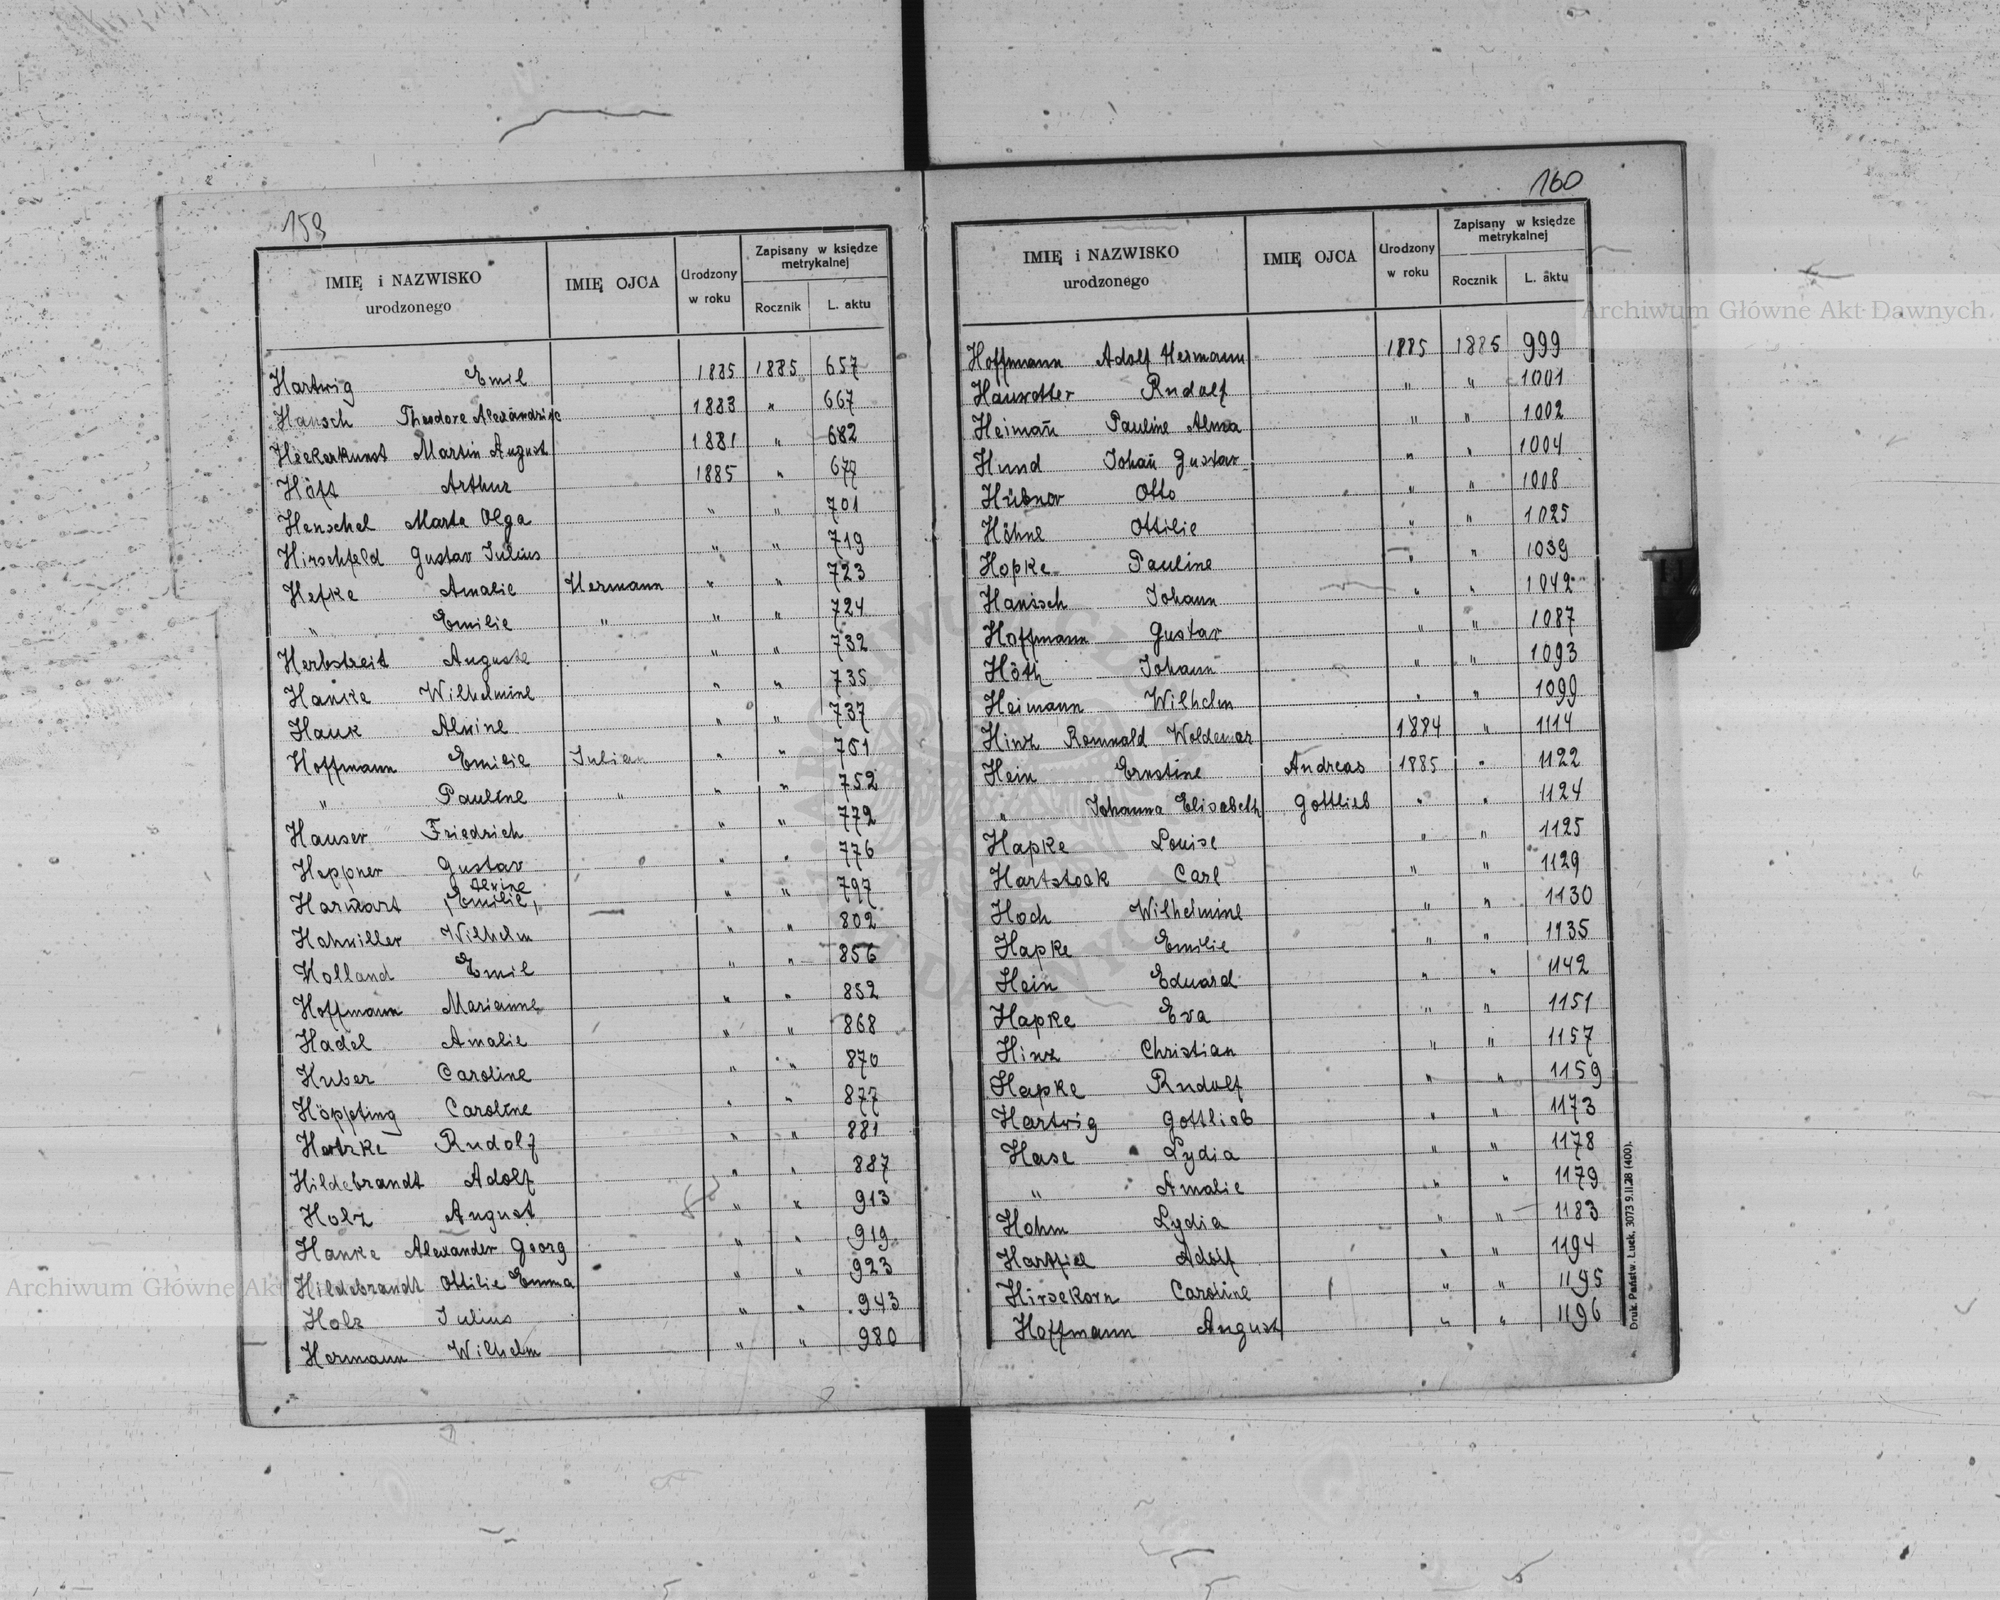 159
IMIĘ i NAZWISKO urodzonego | IMIĘ OJCA | Urodzony w roku | Zapisany w księdze metrykalnej
Rocznik | L. aktu
Hartwig Emil 1885 1885 657
Hansch Theodore Alexandrine 1883 " 667
Heekerkunst Martin August 1881 " 682
Höft Arthur 1885 " 677
Henschel Marta Olga " " 701
Hirschfeld Gustav Julius " " 719
Hefke Amalie Hermann " " 723
" Emilie " " " 724
Herbstreit Auguste " " 732
Hanke Wilhelmine " " 735
Hauk Alwine " " 737
Hoffmann Emilie Julian " " 751
" Pauline " " " 752
Hauser Friedrich " " 772
Heppner Gustav " " 776
Harwart Emilie Alvine " " 797
Hahniller Wilhelm " " 802
Holland Emil " " 856
Hoffmann Marianne " " 852
Hadel Amalie " " 868
Huber Caroline " " 870
Höppting Caroline " " 877
Hertzke Rudolf " " 881
Hildebrandt Adolf " " 887
Holz August " " 913
Hanke Alexander Georg " " 919
Hildebrandt Ottilie Emma " " 923
Holz Julius " " 943
Hermann Wilhelm " " 980
160
IMIĘ i NAZWISKO urodzonego | IMIĘ OJCA | Urodzony w roku | Zapisany w księdze metrykalnej
Rocznik | L. aktu
Hoffmann Adolf Hermann 1885 1885 999
Hausotter Rudolf " " 1001
Heimañ Pauline Alma " " 1002
Hund Johañ Gustav " " 1004
Hübner Otto " " 1008
Höhne Ottilie " " 1025
Hopke Pauline " " 1039
Hanisch Johann " " 1042
Hoffmann Gustav " " 1087
Höth Johann " " 1093
Heimann Wilhelm " " 1099
Hinz Romuald Woldemar 1884 " 1114
Hein Ernstine Andreas 1885 " 1122
" Johanna Elisabeth Gottlieb " " 1124
Hapke Louise " " 1125
Hartstock Carl " " 1129
Hoch Wilhelmine " " 1130
Hapke Emilie " " 1135
Hein Eduard " " 1142
Hapke Eva " " 1151
Hinz Christian " " 1157
Hapke Rudolf " " 1159
Hartwig Gottlieb " " 1173
Hase Lydia " " 1178
" Amalie " " 1179
Hohm Lydia " " 1183
Hartfiel Adolf " " 1194
Hirsekorn Caroline " " 1195
Hoffmann August " " 1196
Druk. Państw. Łuck. 3073 9.II.28 (400).
Archiwum Główne Akt Dawnych
Archiwum Główne Akt